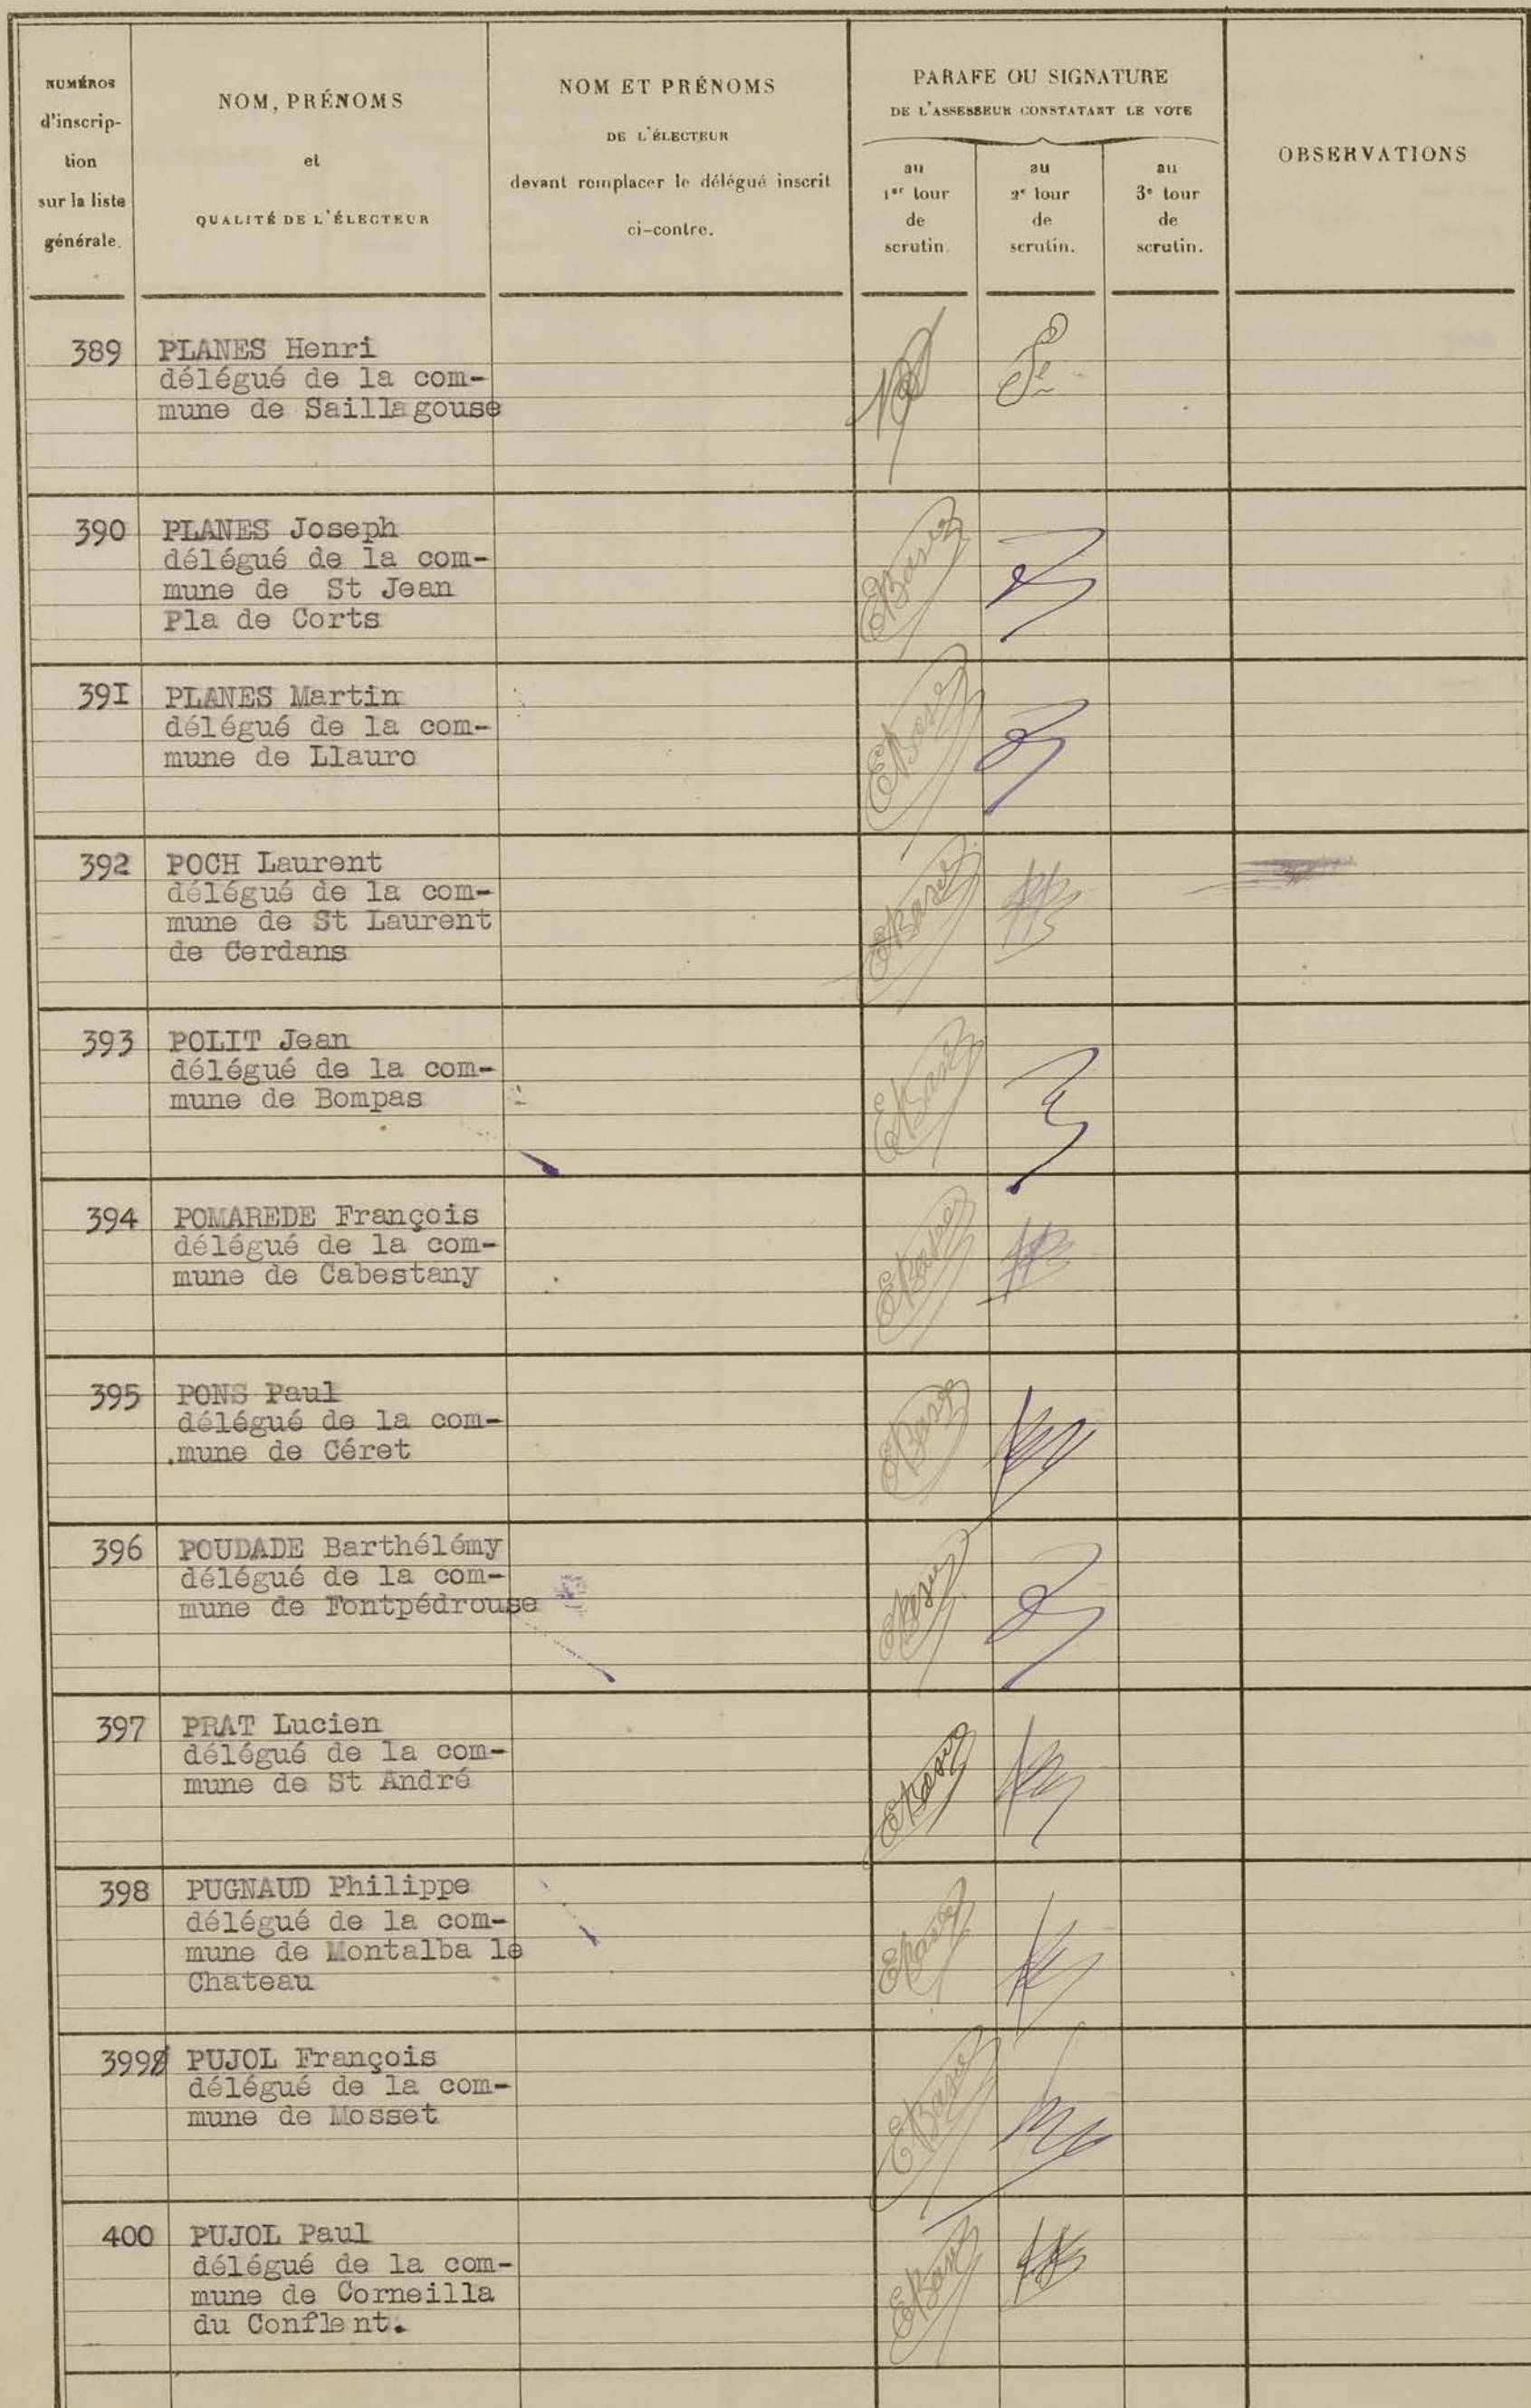 NUMÉROS
d'inscrip-
tion
sur la liste
générale.
NOM, PRÉNOMS
et
QUALITÉ DE L'ÉLECTEUR
NOM ET PRÉNOMS
DE L'ÉLECTEUR
devant remplacer le délégué inscrit
ci-contre.
PARAFE OU SIGNATURE
DE L'ASSESSEUR CONSTATANT LE VOTE
au
1er tour
de
scrutin.
au
2e tour
de
scrutin.
au
3e tour
de
scrutin.
OBSERVATIONS
389 PLANES Henri
délégué de la com-
mune de Saillagouse
390 PLANES Joseph
délégué de la com-
mune de St Jean
Pla de Corts
39I PLANES Martin
délégué de la com-
mune de Llauro
392 POCH Laurent
délégué de la com-
mune de St Laurent
de Cerdans
393 POLIT Jean
délégué de la com-
mune de Bompas
394 POMAREDE François
délégué de la com-
mune de Cabestany
395 PONS Paul
délégué de la com-
mune de Céret
396 POUDADE Barthélémy
délégué de la com-
mune de Fontpédrouse
397 PRAT Lucien
délégué de la com-
mune de St André
398 PUGNAUD Philippe
délégué de la com-
mune de Montalba le
Chateau
399 PUJOL François
délégué de la com-
mune de Mosset
400 PUJOL Paul
délégué de la com-
mune de Corneilla
du Conflent.